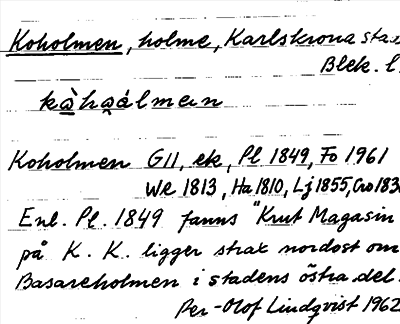 Koholmen, holme, Karlskrona stad
Blek. l.
kàhọálmęn
Koholmen G11, ek, Pl 1849, Fo 1961
We 1813, Ha 1810, Lj 1855, Cro 183
Enl. Pl. 1849 fanns "Krut Magasin
på K. K. ligger strax nordost om
Basareholmen i stadens östra del.
Per-Olof Lindqvist 1962